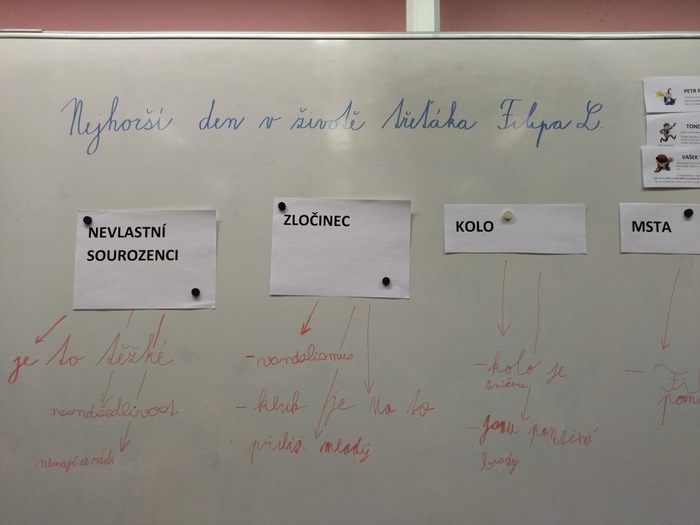 Nejhorší den v životě třeťáka Filipa L.
PETR
TOND
VAŠEK
NEVLASTNÍ
SOUROZENCI
je to těžké
nesnášedlivost
nemají se rádi
ZLOČINEC
- vandalismus
- kluk je na to
- příliš mladý
KOLO
- kolo je
zničené
- jsou ponič
brzdy
MSTA
- Fil
pom